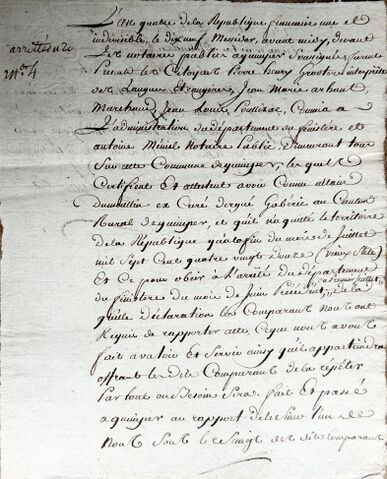 L'an quatre de la République française une et
indivisible, le dix neuf Messidor, avant midy, devant
Les notaires public a quimper Soussignés, furent
Présents les Citoyens Pierre henry Grooters interprète
des Langues Etrangeres, Jean Marie arhant
Marchand, Jean Louis Poullizac, Commis a
L'administration du département du finistère et
antoine Mimiel Notaire Public Demeurant tous
Sur cette Commune de quimper, les quels
Certifient Et attestent avoir Connu allain
dumoulin ex Curé d'ergué Gabéric au Canton
Rural de quimper, et qu'il n'a quitté le territoire
de la République qu'a la fin du mois de Juillet
mil Sept Cent quatre vingt Douze (vieux Stile)
Et Ce pour obéir à l'arrêté du département
du finistère du mois de Juin Précédent, de la
quelle déclaration les Comparants Nous ont
Requis de rapporter acte, Ce que nous avons
fait a valoir Et Servir ainsy qu'il appartiendra
offrant les dits Comparants de la répéter
Par tout ou Besoin Sera. fait Et passé
a quimper au rapport de
Nous Sous les Seings des dits Comparants
arrêté du 20
N° 4